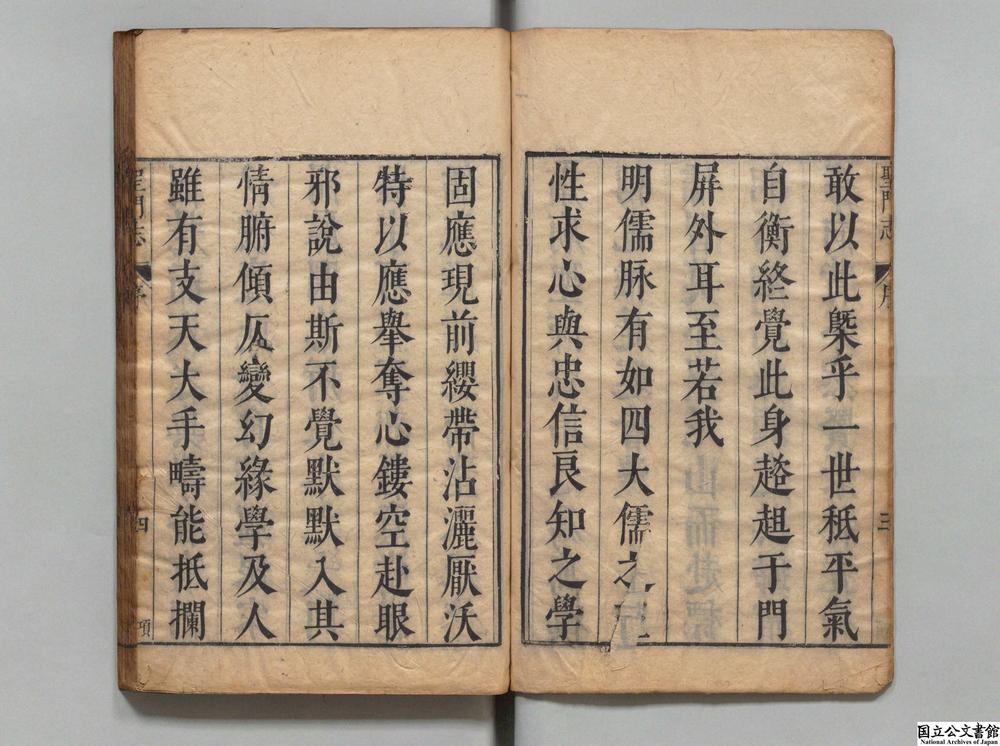 聖門志
序
三
敢以此槩乎一世秪平氣
自衡終覺此身趦趄于門
屏外耳至若我
明儒脉有如四大儒之
性求心與忠信良知之學
固應現前纓帶沾灑厭沃
特以應舉奪心鏤空赴眼
邪說由斯不覺默默入其
情腑傾仄變幻緣學及人
雖有支天大手疇能抵攔
聖門志
序
四
項
国立公文書館
National Archives of Japan